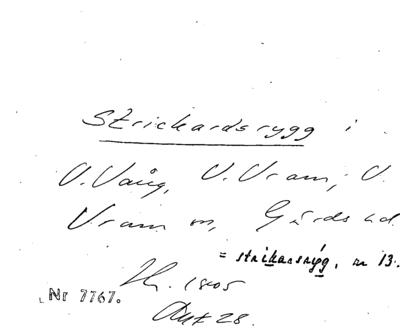 Strickardsrygg i
V. Vång, V. Vram, V.
Vram sn, Gärds hd.
= strikarsryg, m 13.
1805
Nr 7767.
Akt 28.